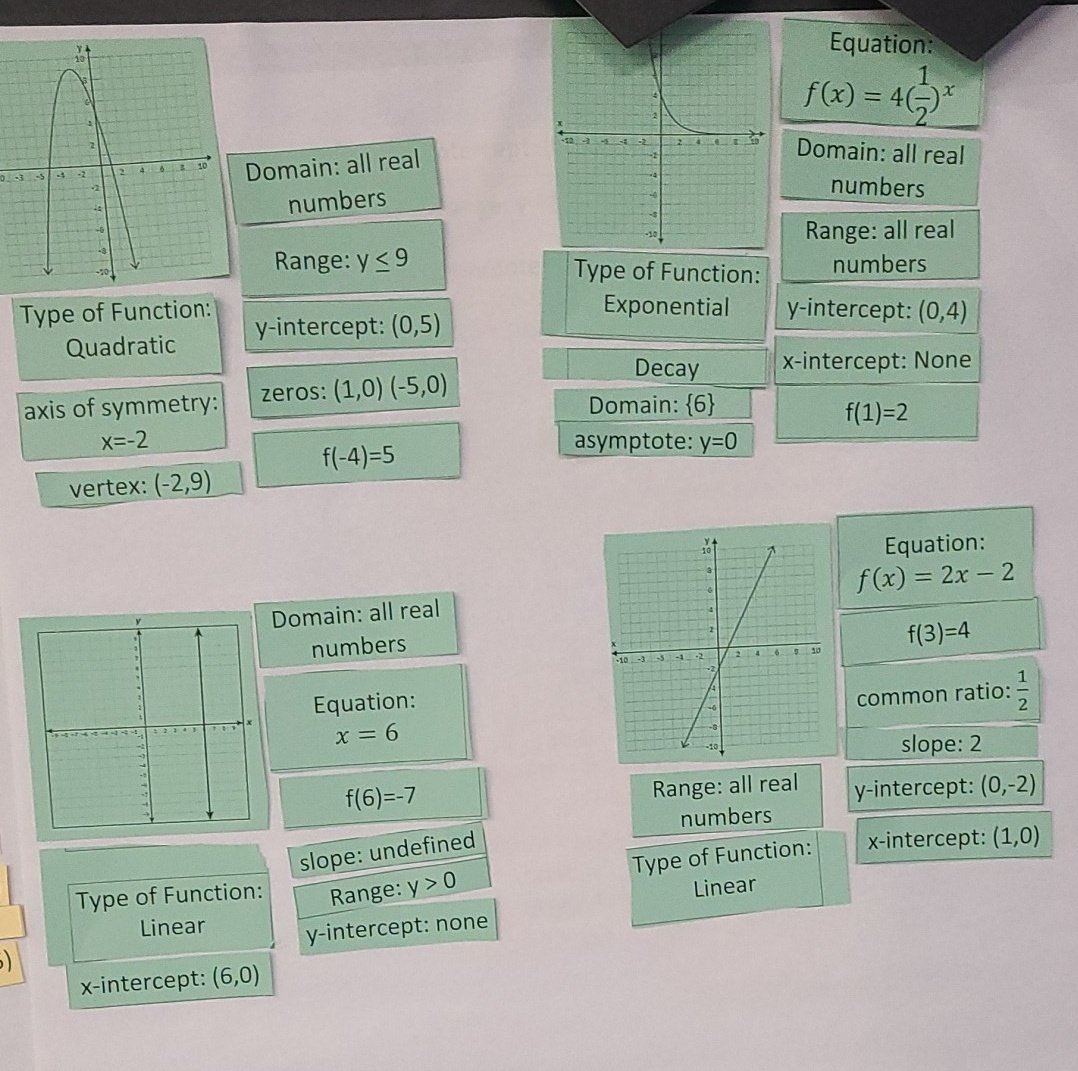 Domain: all real
numbers
Range: y ≤ 9
y-intercept: (0,5)
zeros: (1,0) (-5,0)
f(-4)=5
Type of Function:
Quadratic
axis of symmetry:
x=-2
vertex: (-2,9)
Equation:
f(x) = 4(1/2)^x
Domain: all real
numbers
Range: all real
numbers
y-intercept: (0,4)
x-intercept: None
f(1)=2
Type of Function:
Exponential
Decay
Domain: {6}
asymptote: y=0
Domain: all real
numbers
Equation:
x = 6
f(6)=-7
slope: undefined
Range: y > 0
y-intercept: none
Type of Function:
Linear
x-intercept: (6,0)
Equation:
f(x) = 2x − 2
f(3)=4
common ratio: 1/2
slope: 2
y-intercept: (0,-2)
x-intercept: (1,0)
Range: all real
numbers
Type of Function:
Linear